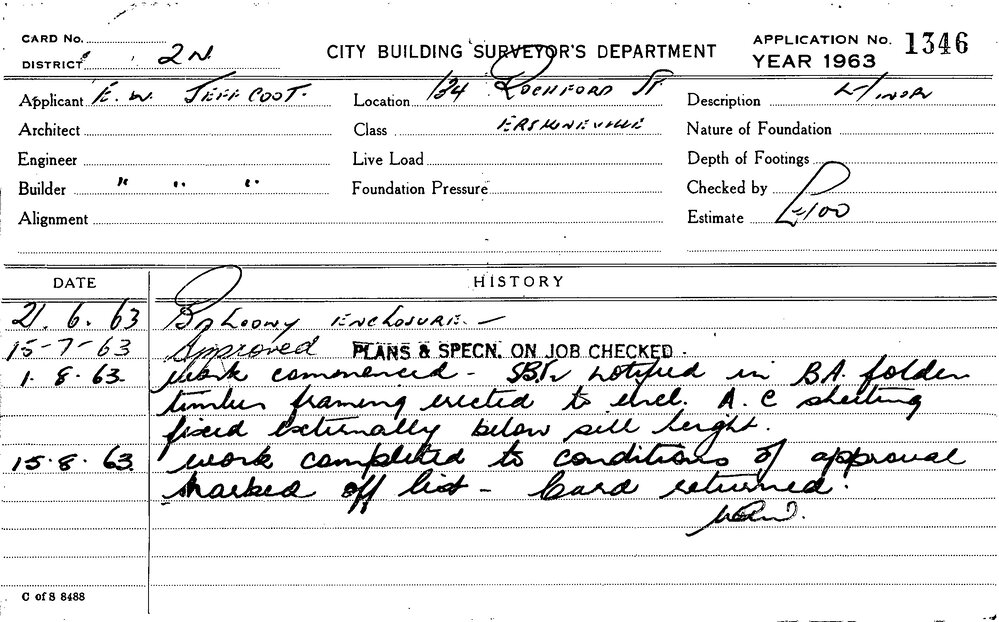 CARD No.
DISTRICT 2N.
CITY BUILDING SURVEYOR'S DEPARTMENT
APPLICATION No. 1346
YEAR 1963
Applicant E. W. JEFFCOOT.
Location 134 ROCHFORD ST
Description MINOR
Architect
Class ERSKINEVILLE
Nature of Foundation
Engineer
Live Load
Depth of Footings
Builder " " "
Foundation Pressure
Checked by
Alignment
Estimate £100
DATE HISTORY
21. 6. 63 BALCONY ENCLOSURE. –
15-7-63 Approved PLANS & SPECN. ON JOB CHECKED.
1. 8. 63. Work commenced - notified in B.A. folder
timber framing erected to encl. A.C sheeting
fixed externally below sill height.
15. 8. 63. Work completed to conditions of approval
marked off list - Card returned.
C of S 8488